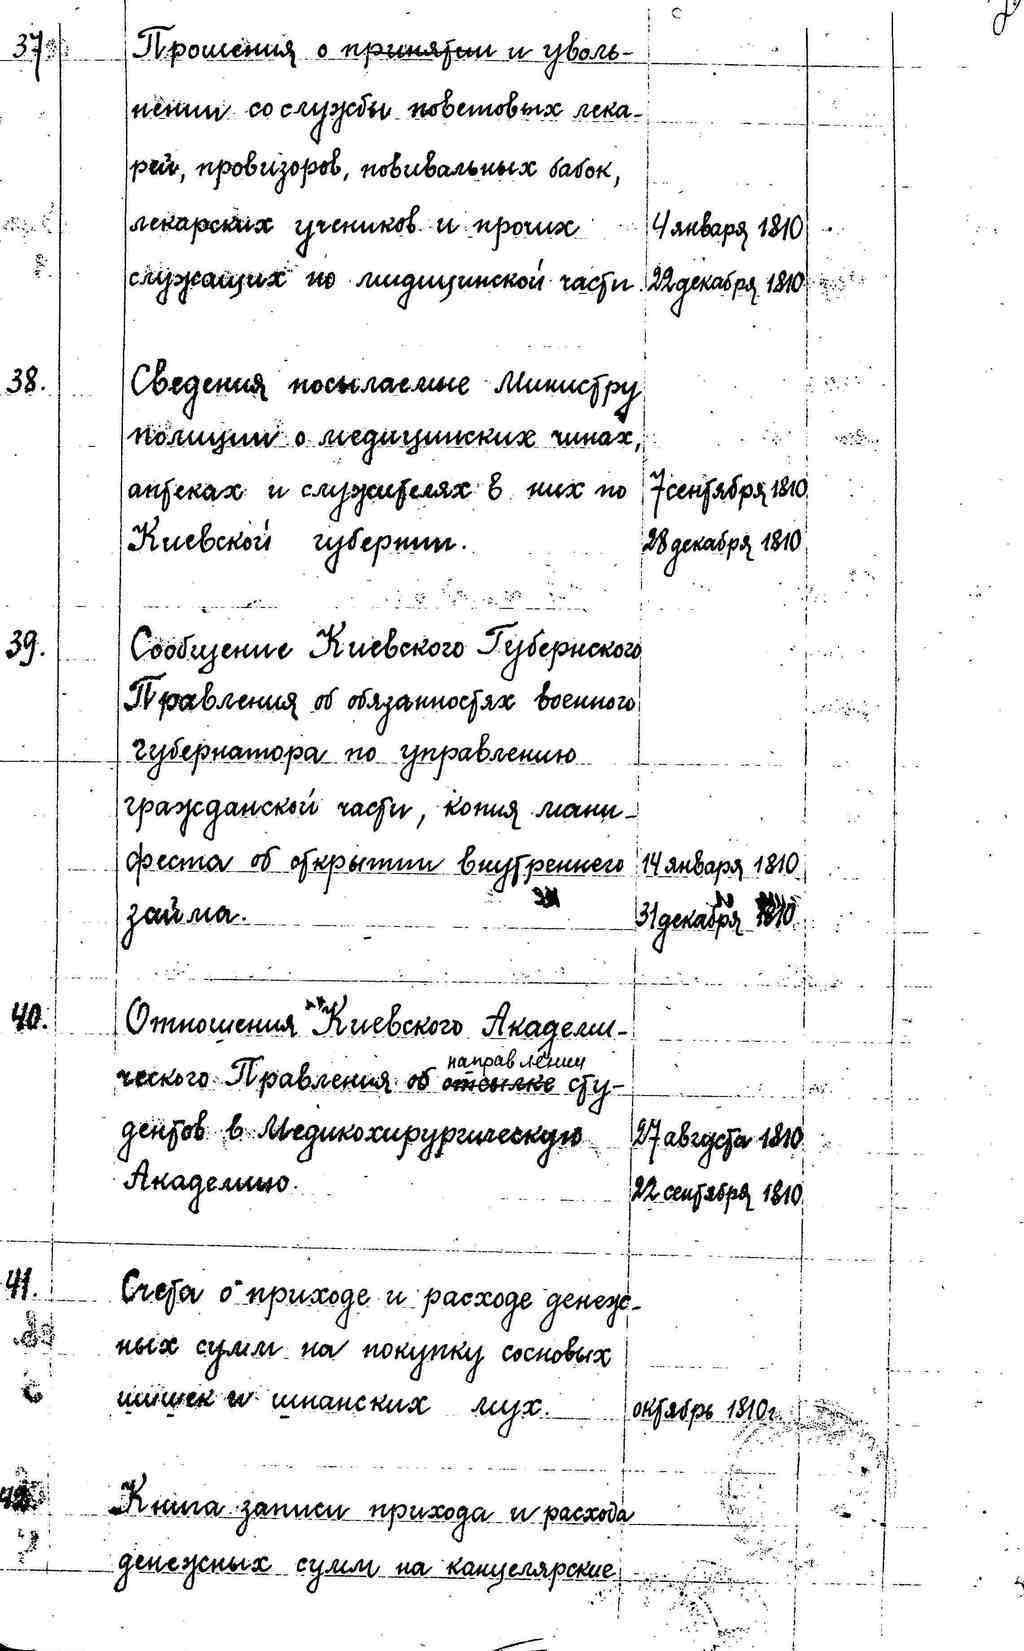 37 Прошения о принятии и уволь-
нении со службы поветовых лека-
рей, провизоров, повивальных бабок,
лекарских учеников и прочих 4 января 1810
служащих по медицинской части 22 декабря 1810
38. Сведения посылаемые Министру
полиции о медицинских чинах,
аптеках и служителях в них по 7 сентября 1810
Киевской губернии. 28 декабря 1810
39. Сообщение Киевского Губернского
Правления об обязанностях военного
губернатора по управлению
гражданской части, копия мани-
феста об открытии внутреннего 14 января 1810
займа. 31 декабря 1810
40. Отношения Киевского Академи-
направлении
ческого Правления об отсылке сту-
дентов в Медикохирургическую 27 августа 1810
Академию. 22 сентября 1810
41. Счета о приходе и расходе денеж-
ных сумм на покупку сосновых
шишек и шпанских мух. октябрь 1810г.
42. Книга записи прихода и расхода
денежных сумм на канцелярские